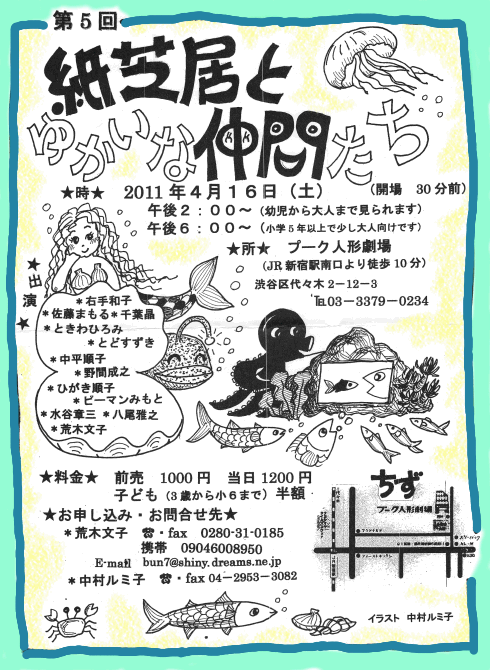 第5回
紙芝居と
ゆかいな仲間たち
★時★ 2011年4月16日(土) (開場 30分前)
午後2:00~(幼児から大人まで見られます)
午後6:00~(小学5年以上で少し大人向けです)
★所★ プーク人形劇場
(JR新宿駅南口より徒歩10分)
渋谷区代々木2-12-3
℡03-3379-0234
★出演★
*右手和子
*佐藤まもる*千葉晶
*ときわひろみ
*とどすずき
*中平順子
*野間成之
*ひがき順子
*ピーマンみもと
*水谷章三 *八尾雅之
*荒木文子
★料金★ 前売 1000円 当日1200円
子ども(3歳から小6まで)半額
★お申し込み・お問合せ先★
*荒木文子 ☎・fax 0280-31-0185
携帯 09046008950
E-mail bun7@shiny.dreams.ne.jp
*中村ルミ子 ☎・fax 04-2953-3082
ちず
プーク人形劇場
イラスト 中村ルミ子